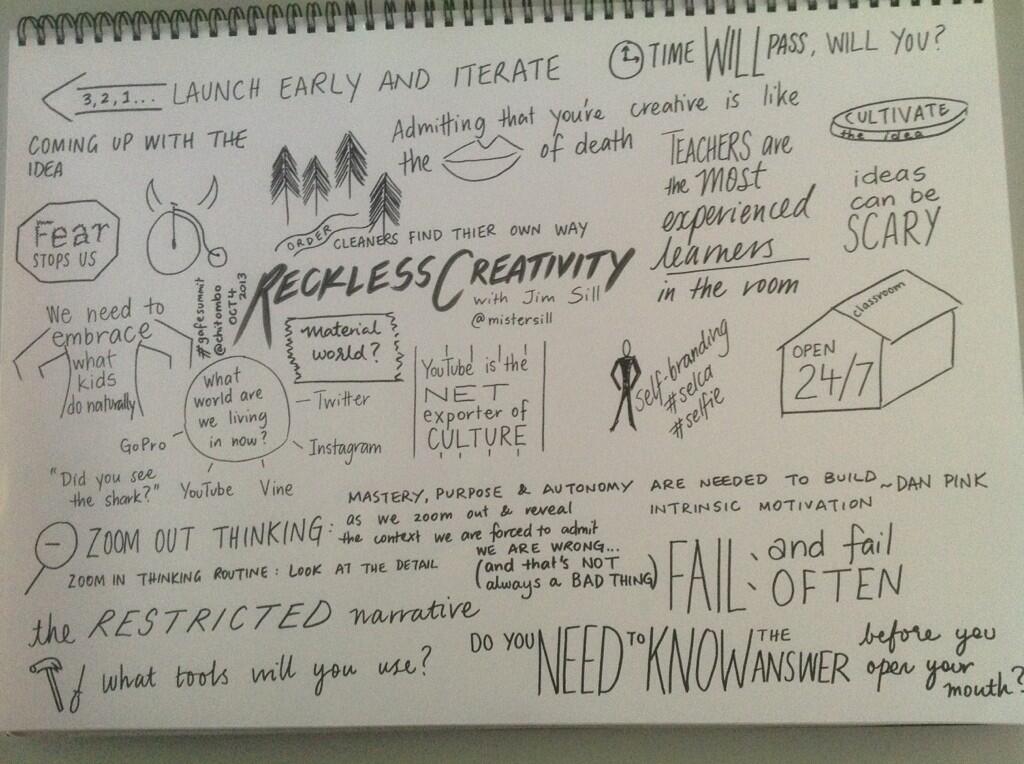 3, 2, 1... LAUNCH EARLY AND ITERATE
TIME WILL PASS, WILL YOU?
COMING UP WITH THE
IDEA
Admitting that you're creative is like
the of death
CULTIVATE
the idea
TEACHERS are
the MOST
experienced
learners
in the room
ideas
can be
SCARY
Fear
STOPS US
ORDER
CLEANERS FIND THIER OWN WAY
RECKLESS CREATIVITY
with Jim Sill
@mistersill
#gafesummit
@chitombo
OCT 4
2013
We need to
embrace
what
kids
do naturally
material
world?
What
world are
we living
in now?
Twitter
Instagram
Vine
YouTube
GoPro
"Did you see
the shark?"
YouTube is the
NET
exporter of
CULTURE
self-branding
#selca
#selfie
classroom
OPEN
24/7
MASTERY, PURPOSE & AUTONOMY ARE NEEDED TO BUILD ~ DAN PINK
INTRINSIC MOTIVATION
ZOOM OUT THINKING: as we zoom out & reveal
the context we are forced to admit
WE ARE WRONG...
(and that's NOT
always a BAD THING)
ZOOM IN THINKING ROUTINE: LOOK AT THE DETAIL
FAIL, and fail
OFTEN
the RESTRICTED narrative
what tools will you use?
DO YOU NEED TO KNOW THE
ANSWER before you
open your
mouth?